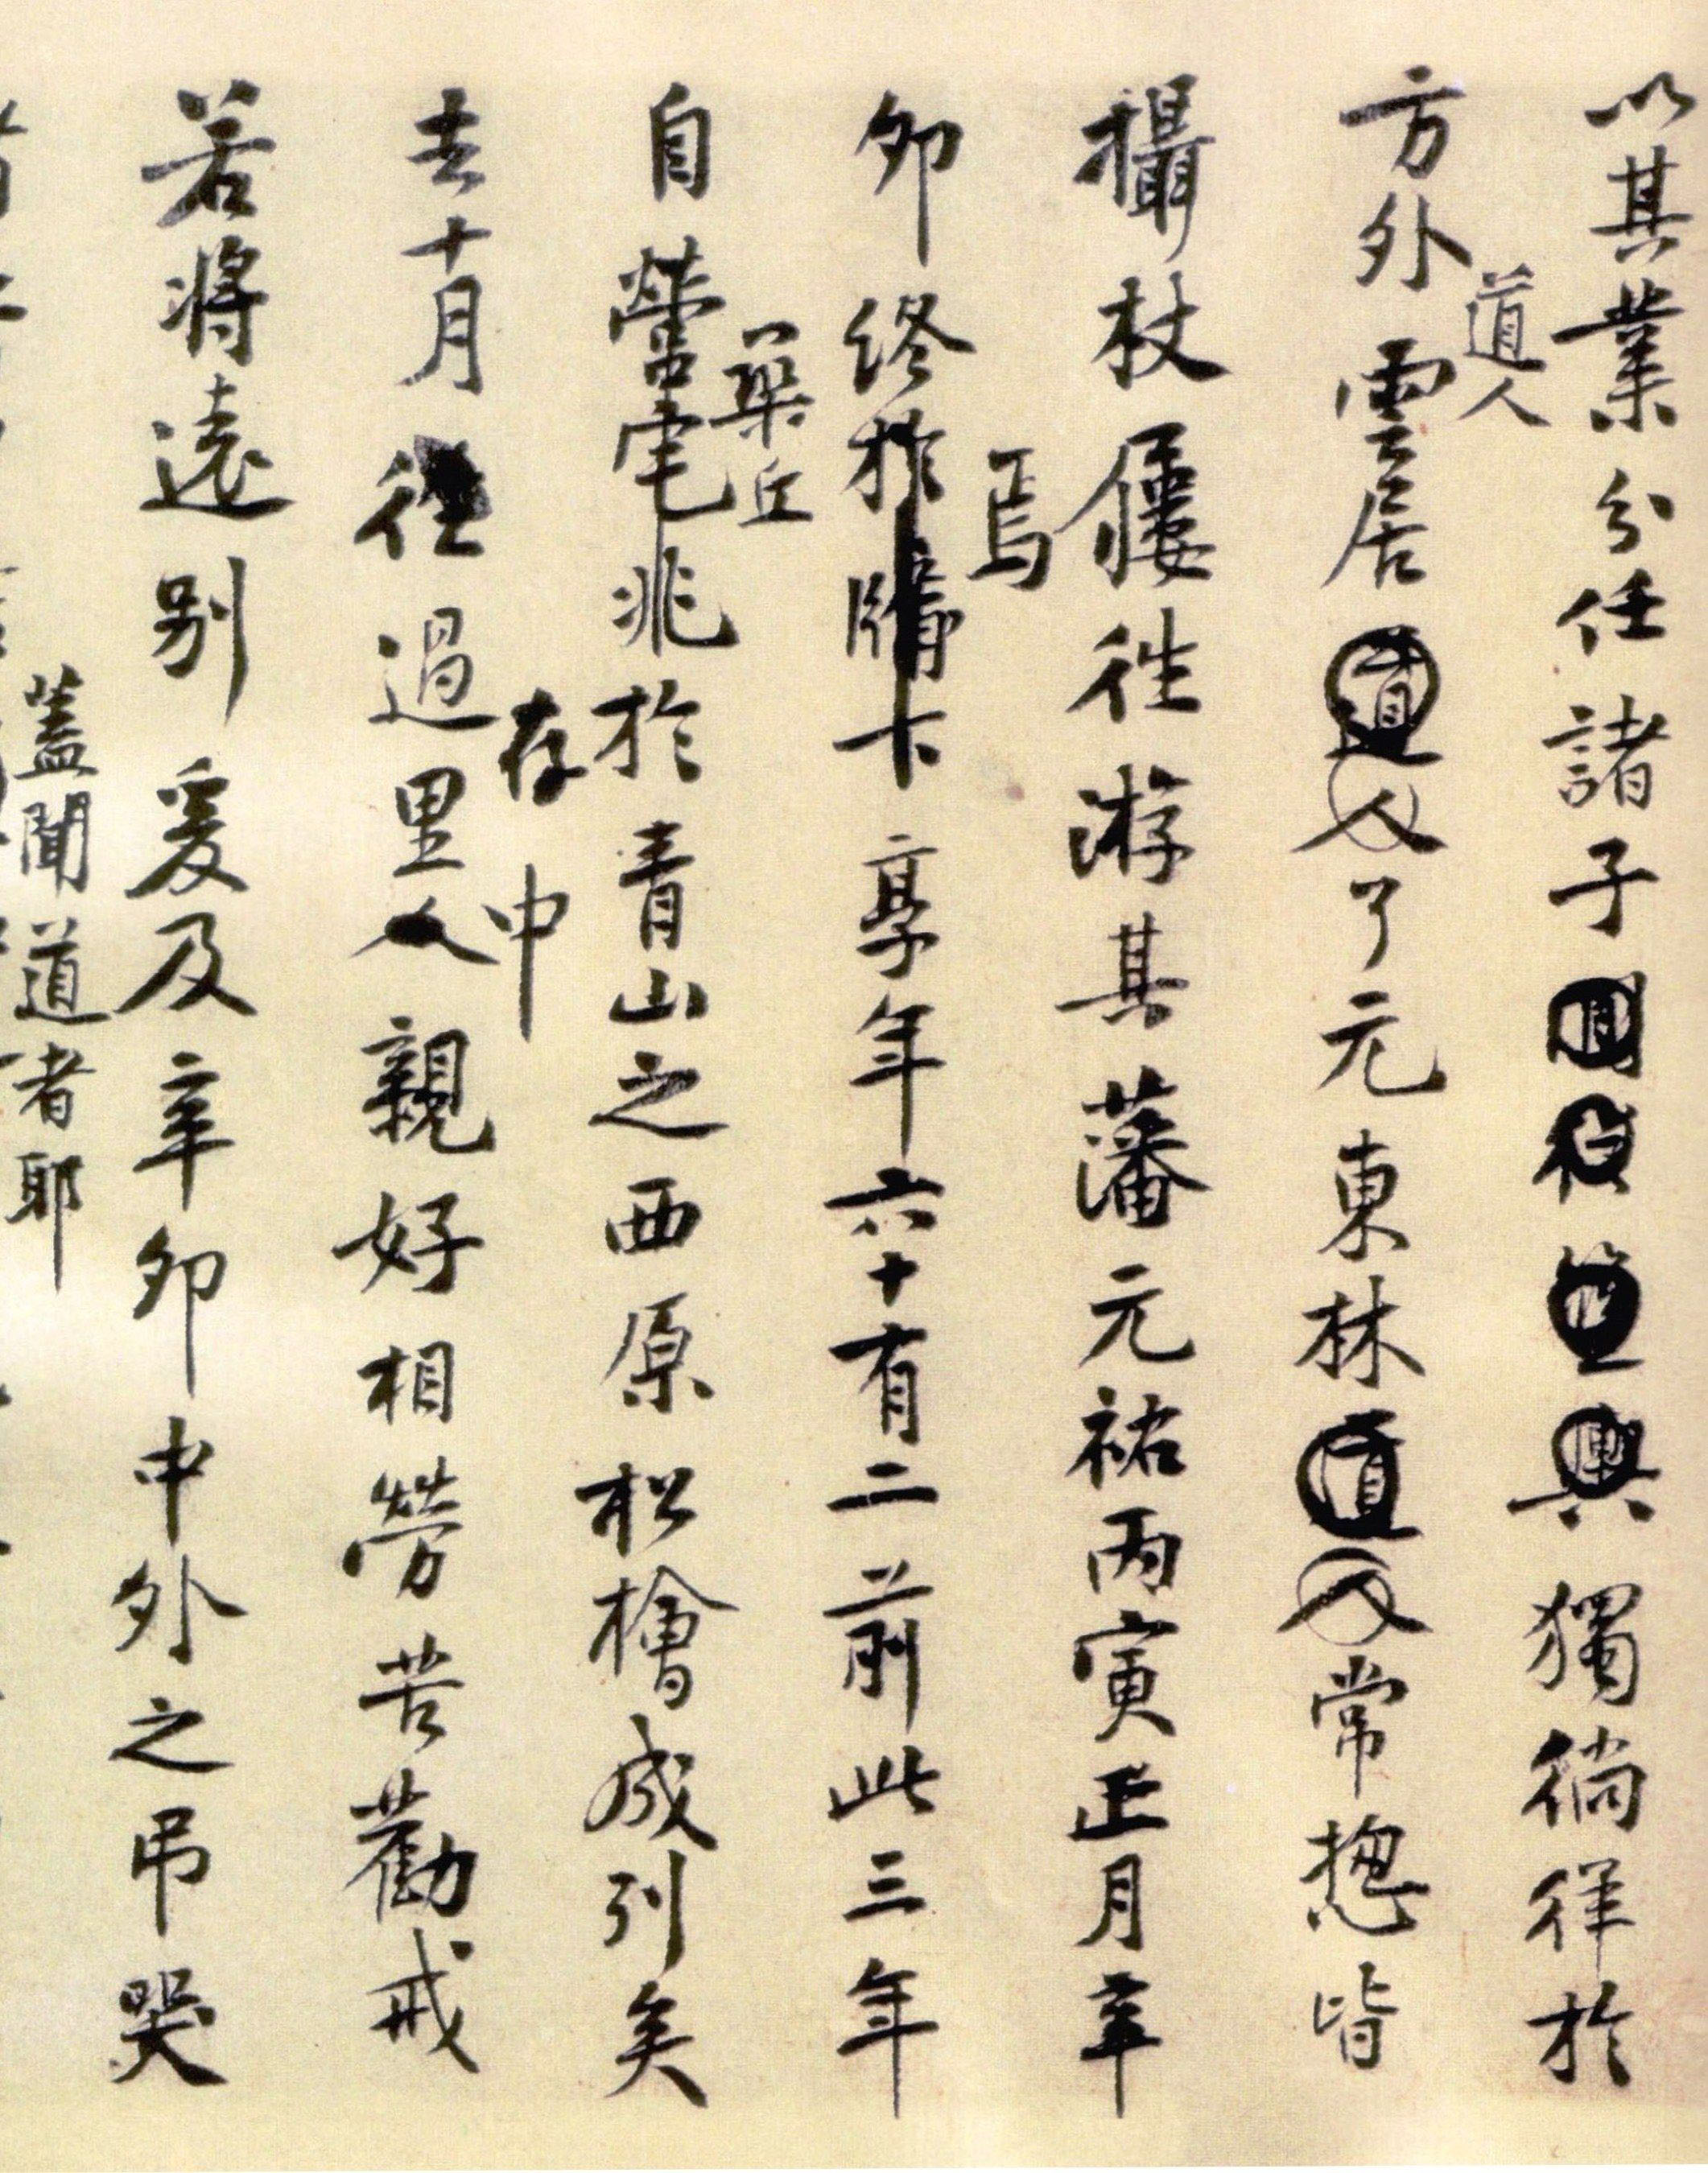 以其業分任諸子獨徜徉於
方外道人雲居道人了元東林道人常揔皆
攝杖屨徃游其藩元祐丙寅正月辛
卯終於牖下焉享年六十有二前此三年
自營宅兆築丘於青山之西原松檜成列矣
去十月過里中人親存好相勞苦勸戒
若將遠別爰及辛卯中外之吊哭
蓋聞道者耶